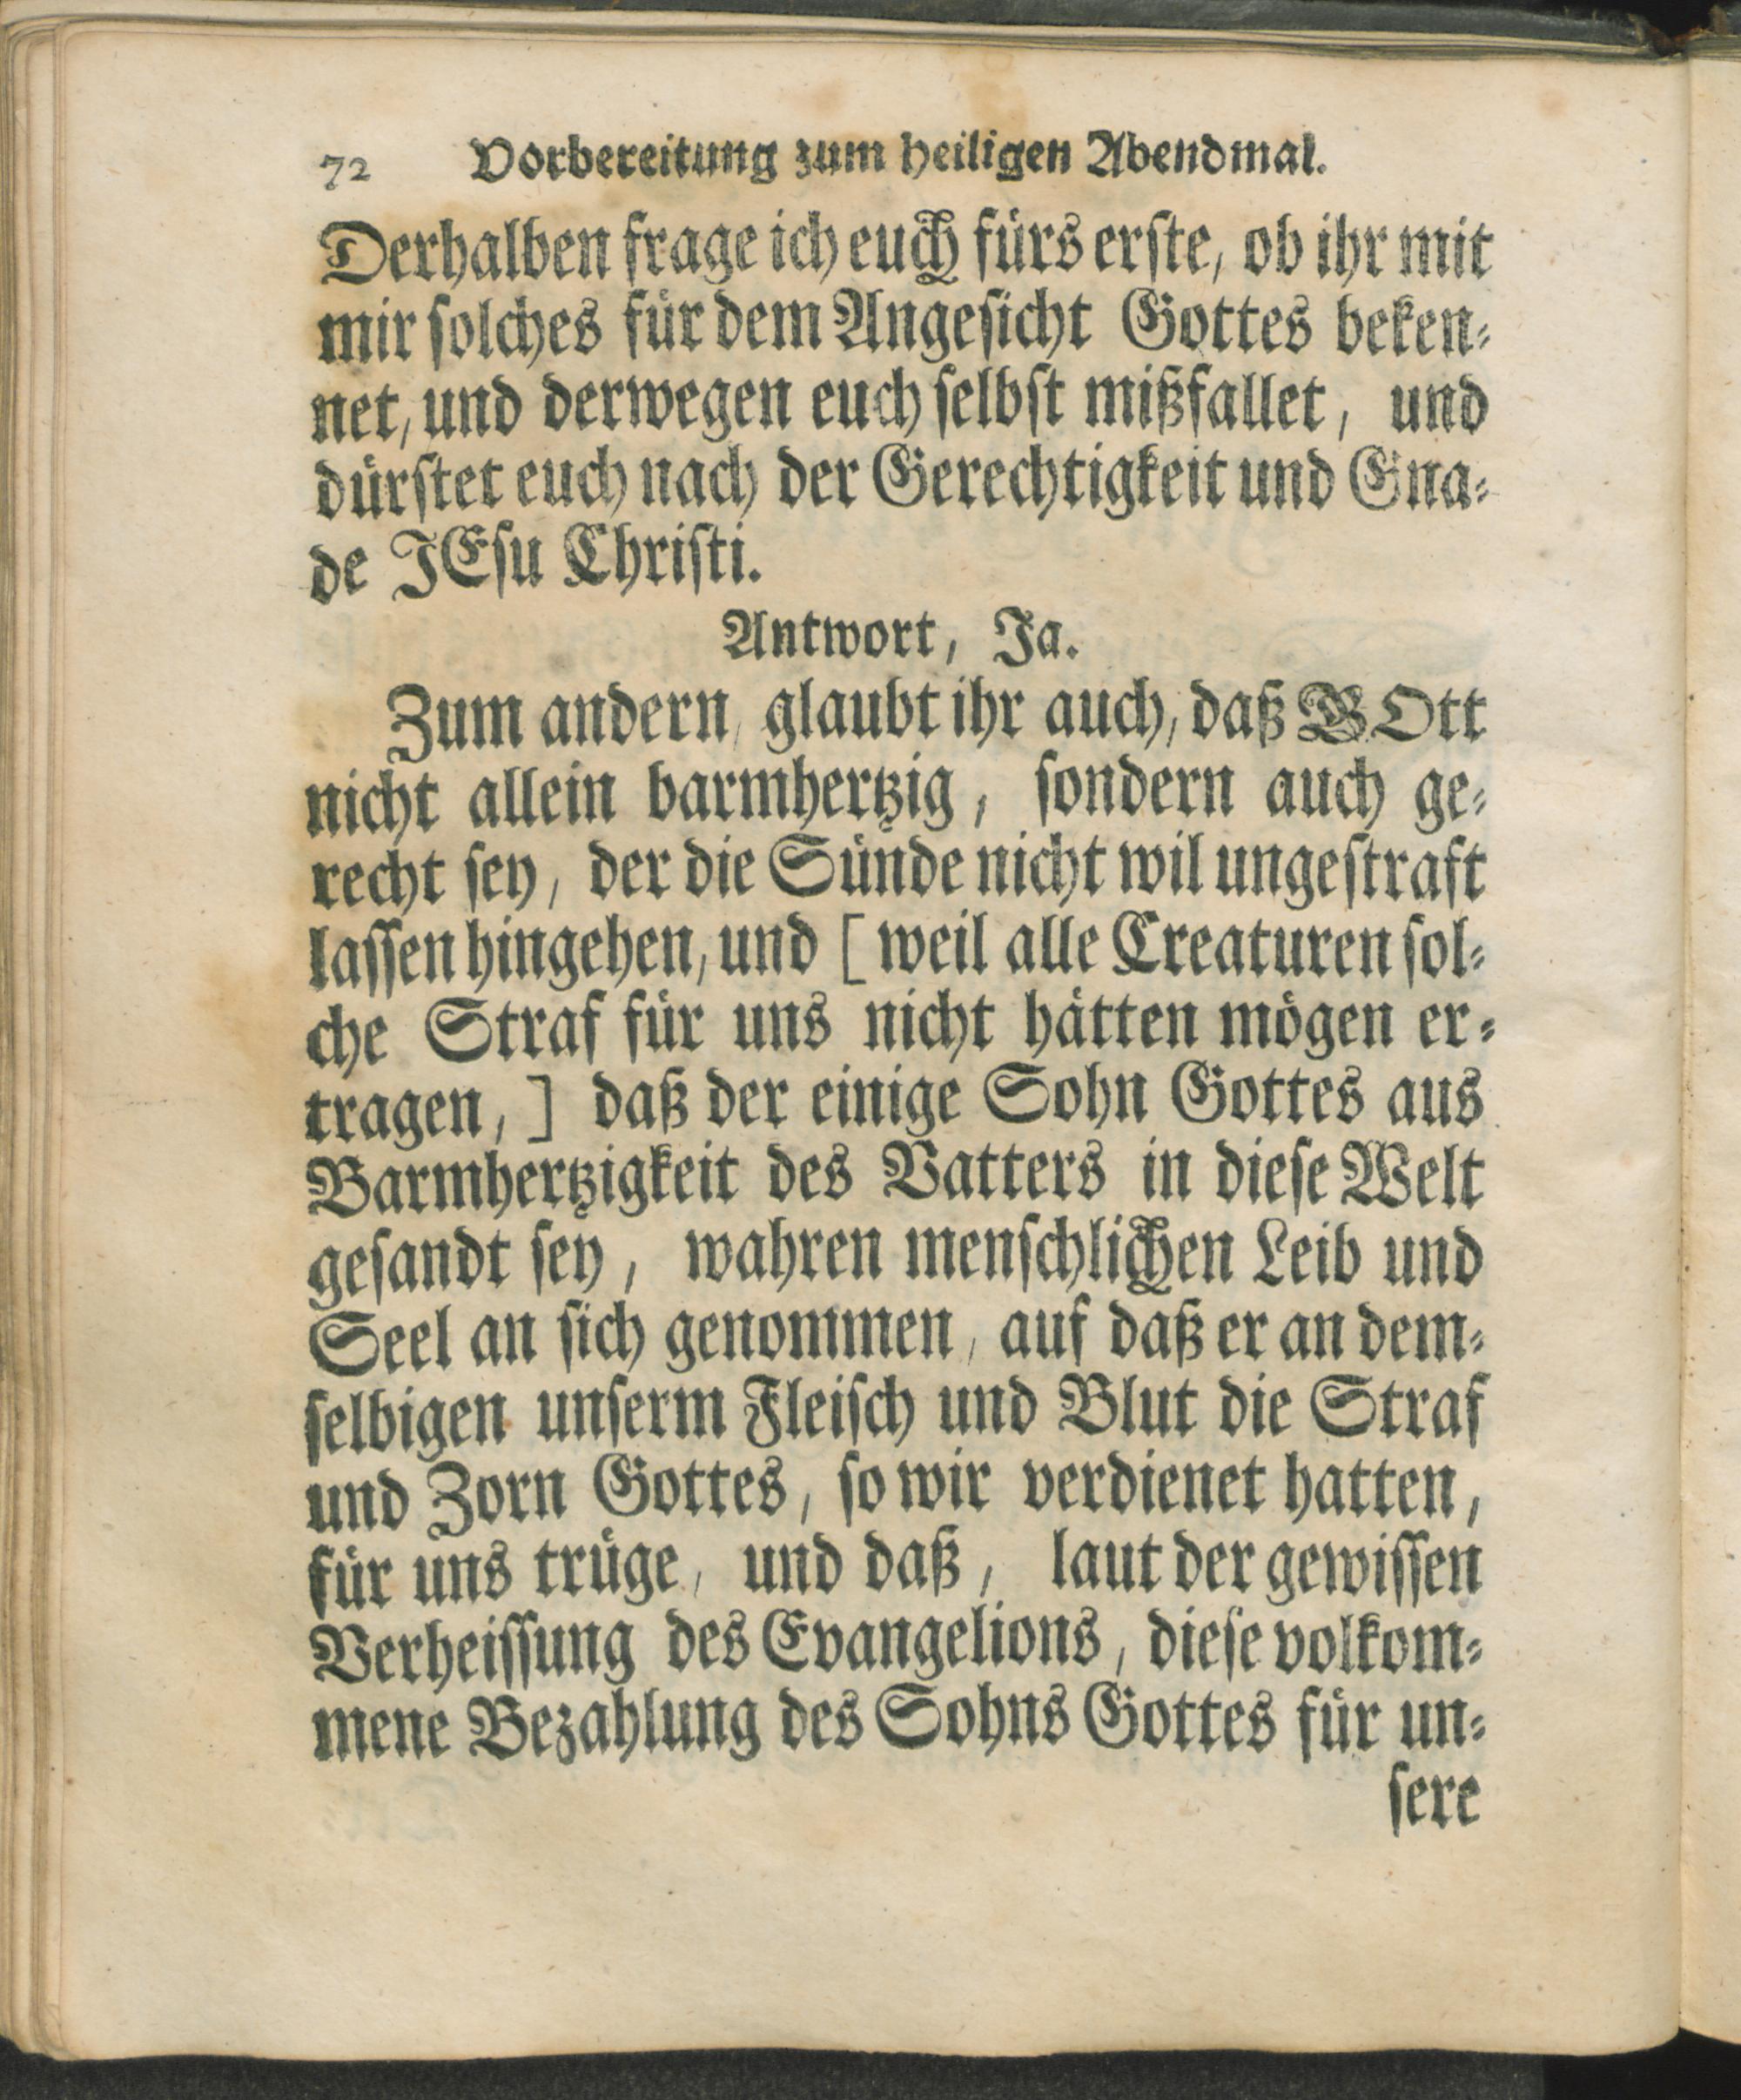 72 Vorbereitung zum heiligen Abendmal.
Derhalben frage ich euch fürs erste, ob ihr mit
mir solches für dem Angesicht Gottes beken-
net, und derwegen euch selbst mißfallet, und
dürstet euch nach der Gerechtigkeit und Gna-
de JEsu Christi.
Antwort, Ja.
Zum andern, glaubt ihr auch, daß GOtt
nicht allein barmhertzig, sondern auch ge-
recht sey, der die Sünde nicht wil ungestraft
lassen hingehen, und [weil alle Creaturen sol-
che Straf für uns nicht hätten mögen er-
tragen,] daß der einige Sohn Gottes aus
Barmhertzigkeit des Vatters in diese Welt
gesandt sey, wahren menschlichen Leib und
Seel an sich genommen, auf daß er an dem-
selbigen unserm Fleisch und Blut die Straf
und Zorn Gottes, so wir verdienet hatten,
für uns trüge, und daß, laut der gewissen
Verheissung des Evangelions, diese volkom-
mene Bezahlung des Sohns Gottes für un-
sere